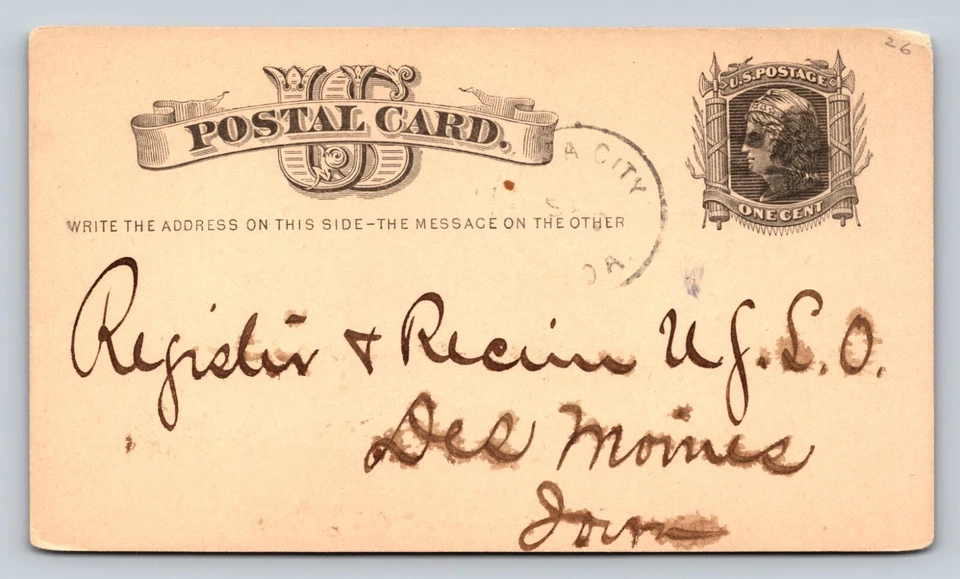 26
U.S. POSTAGE
US
POSTAL CARD.
ONE CENT
A CITY
WRITE THE ADDRESS ON THIS SIDE–THE MESSAGE ON THE OTHER
Register & Receiver U.S.L.O.
Des Moines
Iowa